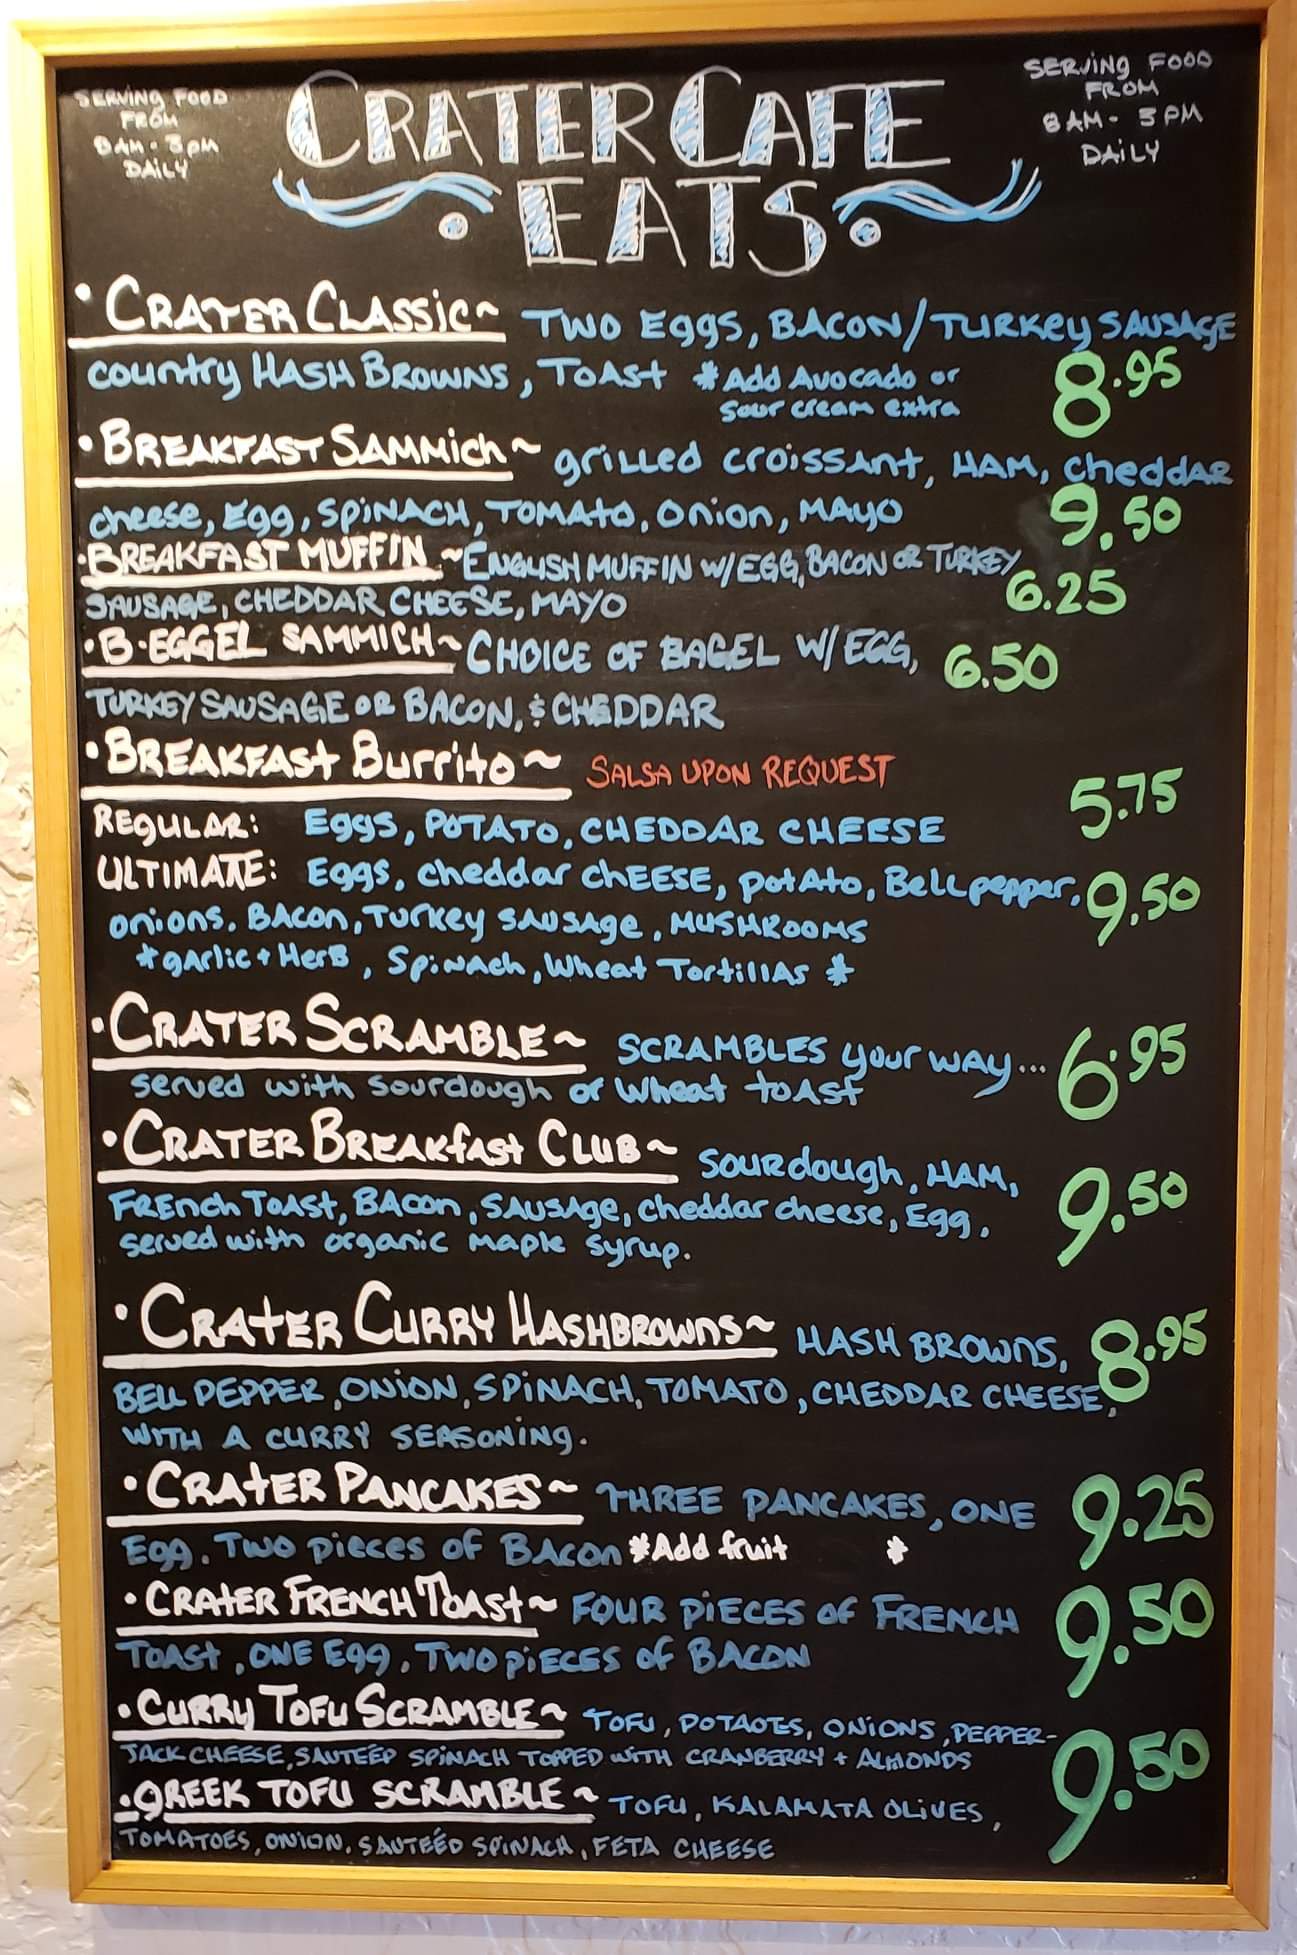 SERVING FOOD
FROM
8AM - 3PM
DAILY
CRATER CAFE
EATS
SERVING FOOD
FROM
8 AM - 3 PM
DAILY
• CRATER CLASSIC ~ TWO EGGS, BACON/TURKEY SAUSAGE
COUNTRY HASH BROWNS, TOAST *Add Avocado or
sour cream extra
8.95
• BREAKFAST SAMMICH ~ grilled croissant, HAM, cheddar
cheese, Egg, SPINACH, TOMATO, Onion, MAYO 9.50
• BREAKFAST MUFFIN ~ ENGLISH MUFFIN W/EGG, BACON OR TURKEY
SAUSAGE, CHEDDAR CHEESE, MAYO 6.25
• B•EGGEL SAMMICH ~ CHOICE OF BAGEL W/ EGG, 6.50
TURKEY SAUSAGE OR BACON, & CHEDDAR
• BREAKFAST Burrito ~ SALSA UPON REQUEST
REGULAR: EGGS, POTATO, CHEDDAR CHEESE 5.75
ULTIMATE: EGGS, cheddar CHEESE, potato, Bell pepper, 9.50
onions, BACON, TURKEY SAUSAGE, MUSHROOMS
*garlic + Herb, Spinach, Wheat Tortillas *
• CRATER SCRAMBLE ~ SCRAMBLES your way... 6.95
served with sourdough or wheat toast
• CRATER BREAKfast CLUB ~ Sourdough, HAM,
FRENCH TOAST, BACON, SAUSAGE, cheddar cheese, Egg, 9.50
served with organic maple syrup.
• CRATER CURRY HASHBROWNS ~ HASH BROWNS, 8.95
BELL PEPPER, ONION, SPINACH, TOMATO, CHEDDAR CHEESE,
WITH A CURRY SEASONING.
• CRATER PANCAKES ~ THREE PANCAKES, ONE 9.25
Egg, Two pieces of BACON *Add fruit *
• CRATER FRENCH TOAST ~ FOUR PIECES of FRENCH 9.50
TOAST, ONE Egg, TWO PIECES of BACON
• CURRY TOFU SCRAMBLE ~ TOFU, POTAOTES, ONIONS, PEPPER-
JACK CHEESE, SAUTEÉD SPINACH TOPPED WITH CRANBERRY + ALMONDS 9.50
• GREEK TOFU SCRAMBLE ~ TOFU, KALAMATA OLIVES,
TOMATOES, ONION, SAUTEÉD SPINACH, FETA CHEESE